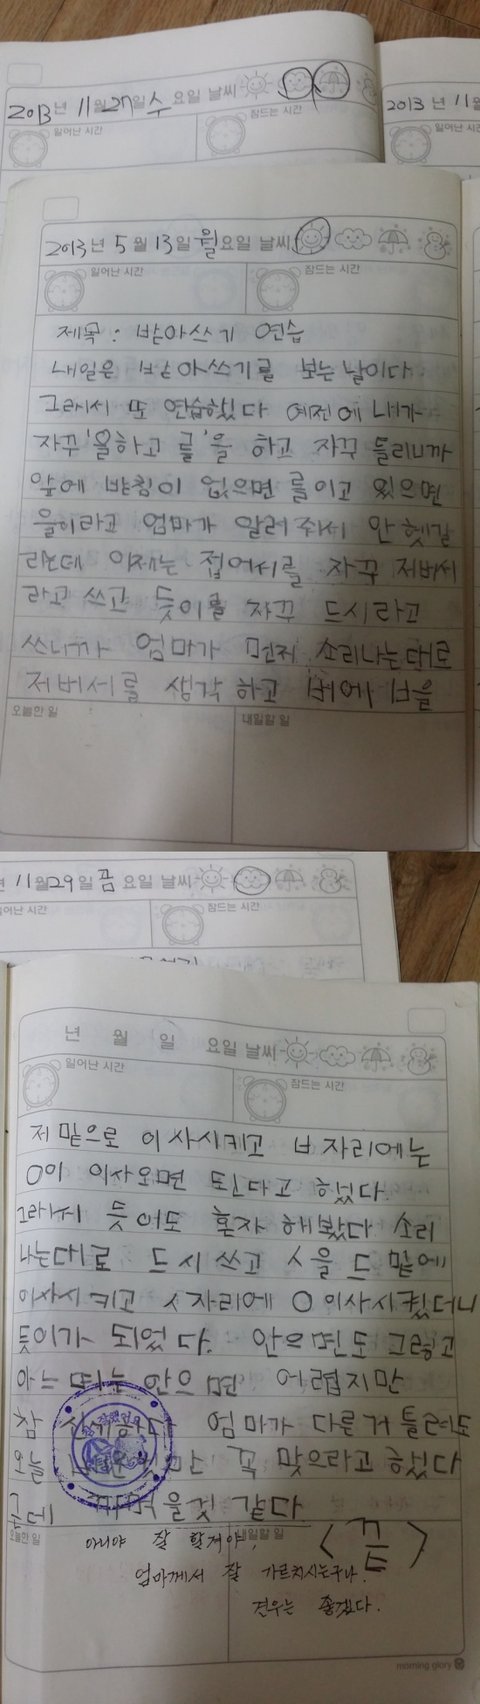 2013년 11월 27일 수요일 날씨
일어난 시간 잠드는 시간
2013년 11
일어난 시간
2013년 5월 13일 월요일 날씨
일어난 시간 잠드는 시간
제목 : 받아쓰기 연습
내일은 받아쓰기를 보는 날이다
그래서 또 연습했다 예전에 내가
자꾸'을하고 를'을 하고 자꾸 틀리니까
앞에 받침이 없으면 를이고 있으면
을이라고 엄마가 알려줘서 안 헷갈
리는데 이제는 접어서를 자꾸 저버서
라고 쓰고 듯이를 자꾸 드시라고
쓰니까 엄마가 먼저 소리나는대로
저버서를 생각하고 버에 ㅂ을
오늘한 일 내일할 일
11월29일 금요일 날씨
일어난 시간 잠드는 시간
년 월 일 요일 날씨
일어난 시간 잠드는 시간
저 밑으로 이사시키고 ㅂ자리에는
ㅇ이 이사오면 된다고 했다.
그래서 듯이도 혼자 해봤다 소리
나는대로 드시 쓰고 ㅅ을 드 밑에
이사시키고 ㅅ자리에 ㅇ이사시켰더니
듯이가 되었다. 안으면도 그렇고
아느며는 안으면 어렵지만
참 엄마가 다른거 틀려도
오늘 꼭 맞으라고 했다
근데 까먹을것 같다
<끝>
오늘한 일 내일할 일
아니야 잘 할거야!
엄마께서 잘 가르치시는구나.
건우는 좋겠다.
morning glory